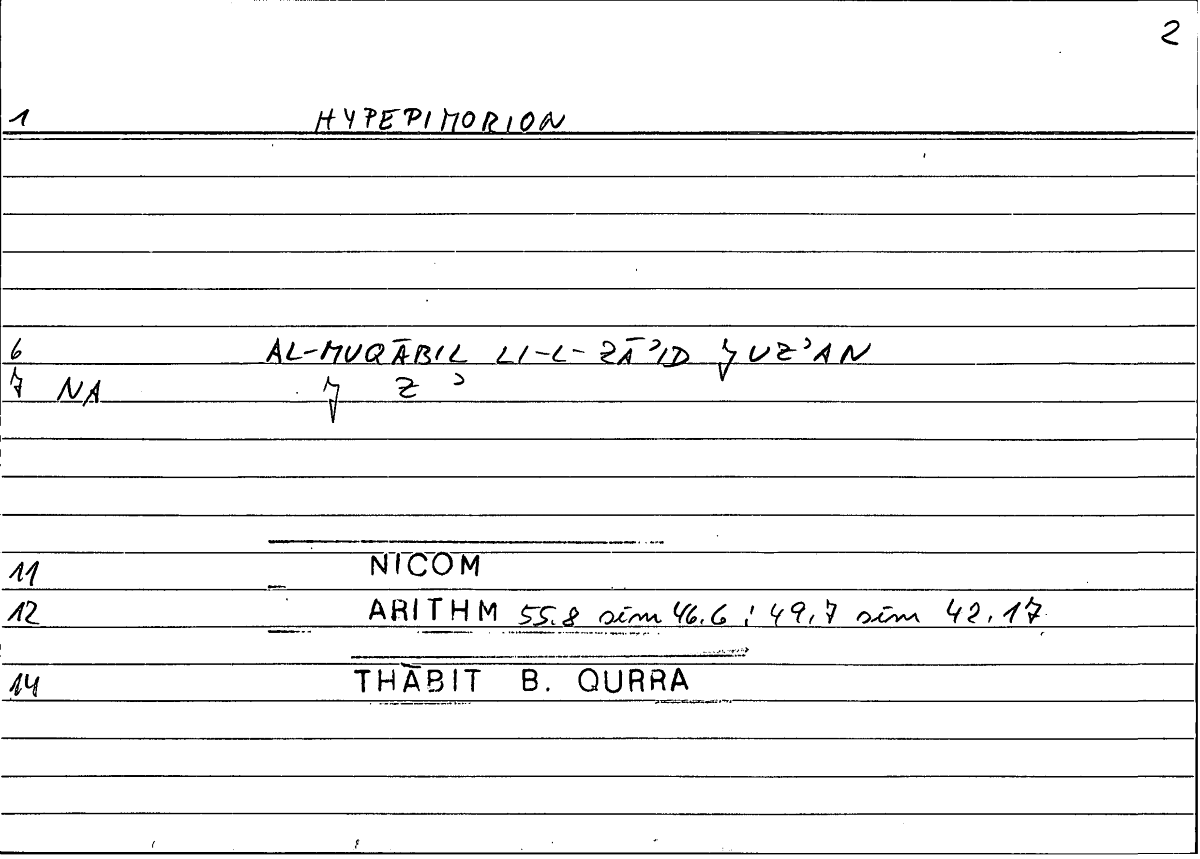 2
1 HYPEPIMORION
6 AL-MUQĀBIL LI-L-ZĀʾID JUZʾAN
7 NA J Z ʾ
11 NICOM
12 ARITHM 55.8 sim 46.6 ; 49.7 sim 42.17
14 THĀBIT B. QURRA